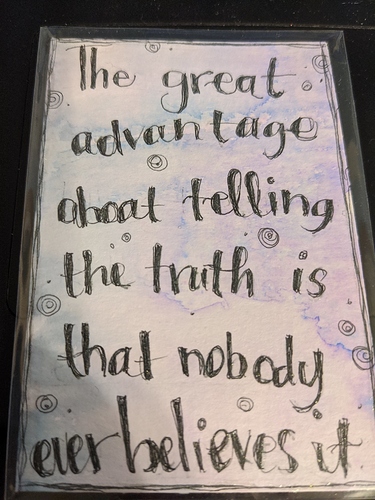 The great
advantage
about telling
the truth is
that nobody
ever believes it